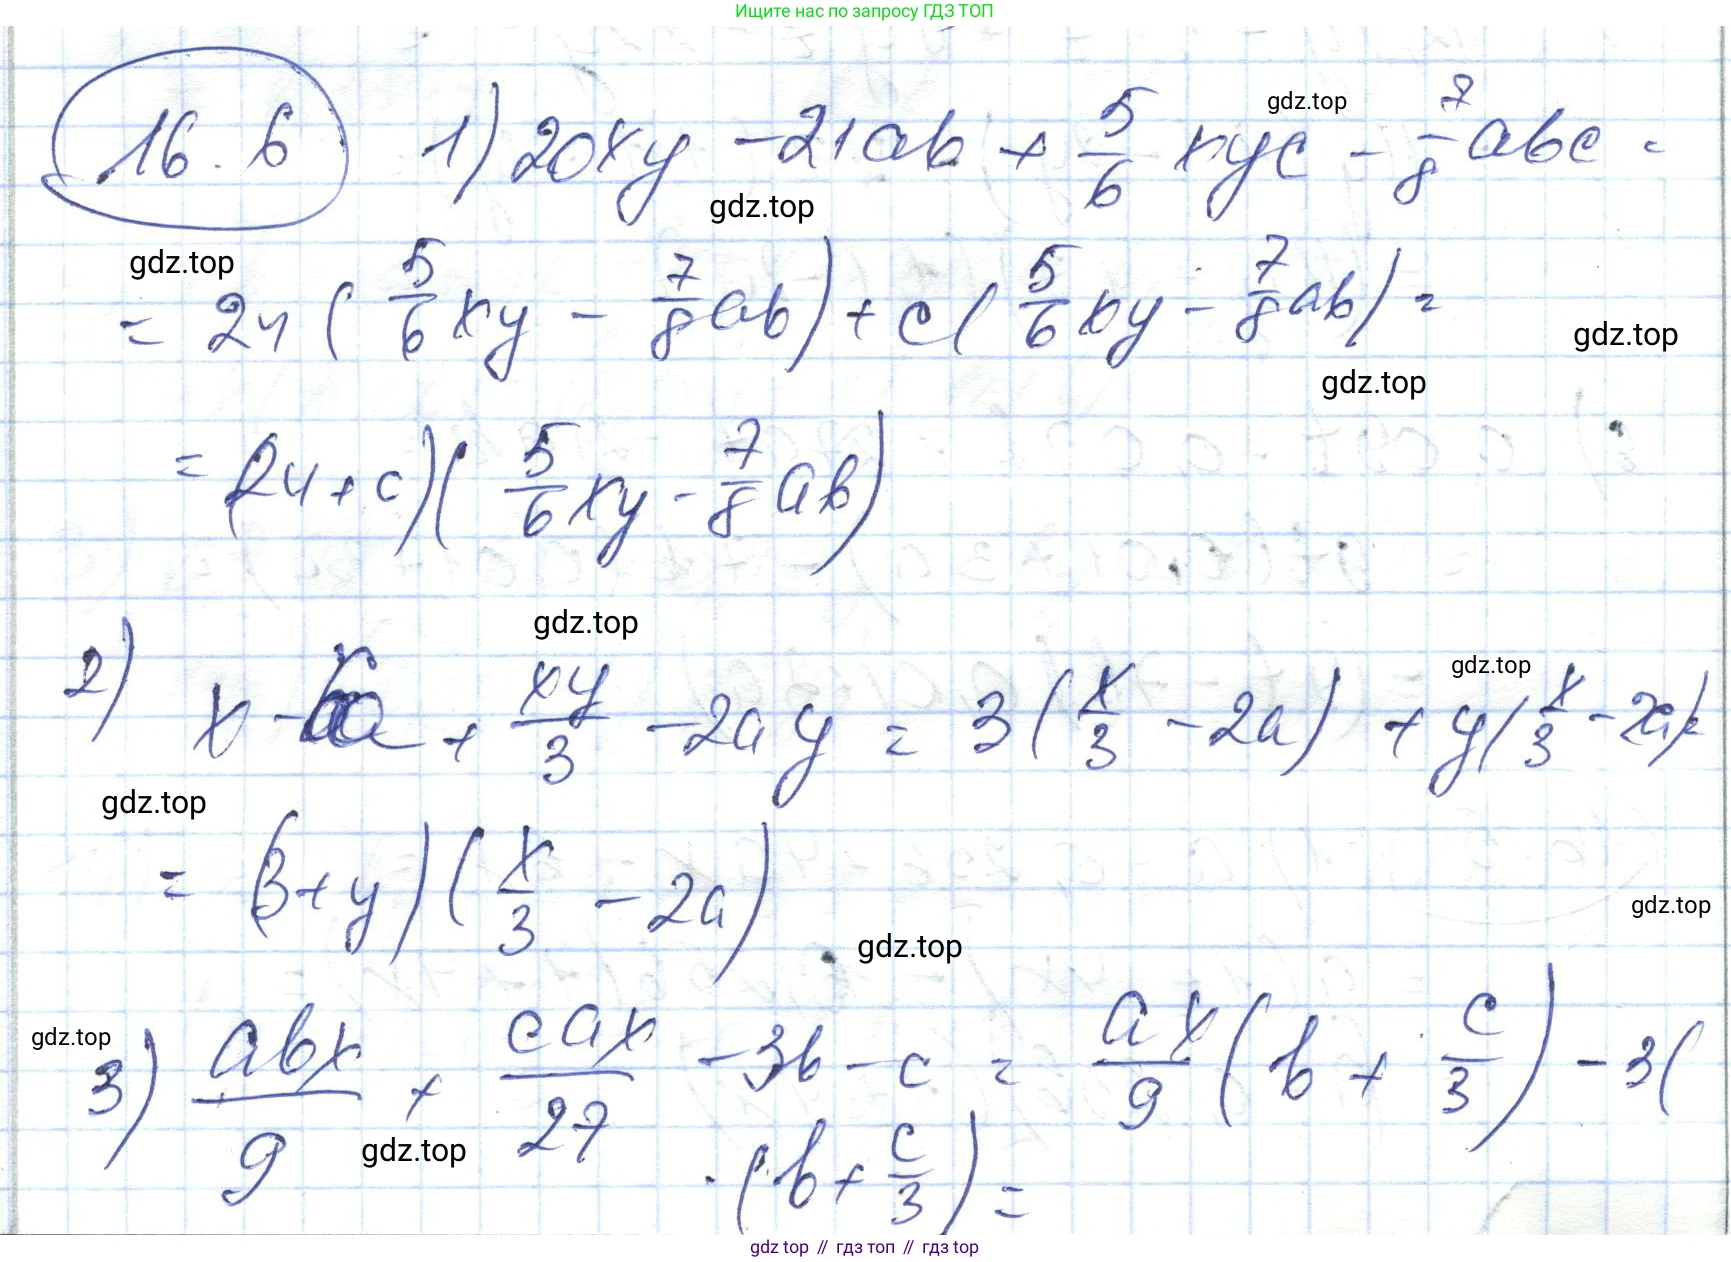 Ищите нас по запросу ГДЗ ТОП
16.6 1) 20xy - 21ab + 5/6 xyc - 7/8 abc =
gdz.top
gdz.top
gdz.top
= 24 ( 5/6 xy - 7/8 ab ) + c ( 5/6 xy - 7/8 ab ) =
gdz.top
gdz.top
= (24 + c) ( 5/6 xy - 7/8 ab )
gdz.top
gdz.top
2) x - 6a + xy/3 - 2ay = 3 ( x/3 - 2a ) + y ( x/3 - 2a ) =
gdz.top
= (3 + y) ( x/3 - 2a )
gdz.top
gdz.top
gdz.top
3) abx/9 + cax/27 - 3b - c = ax/9 ( b + c/3 ) - 3 (
gdz.top
· ( b + c/3 ) =
gdz top // гдз топ // гдз top